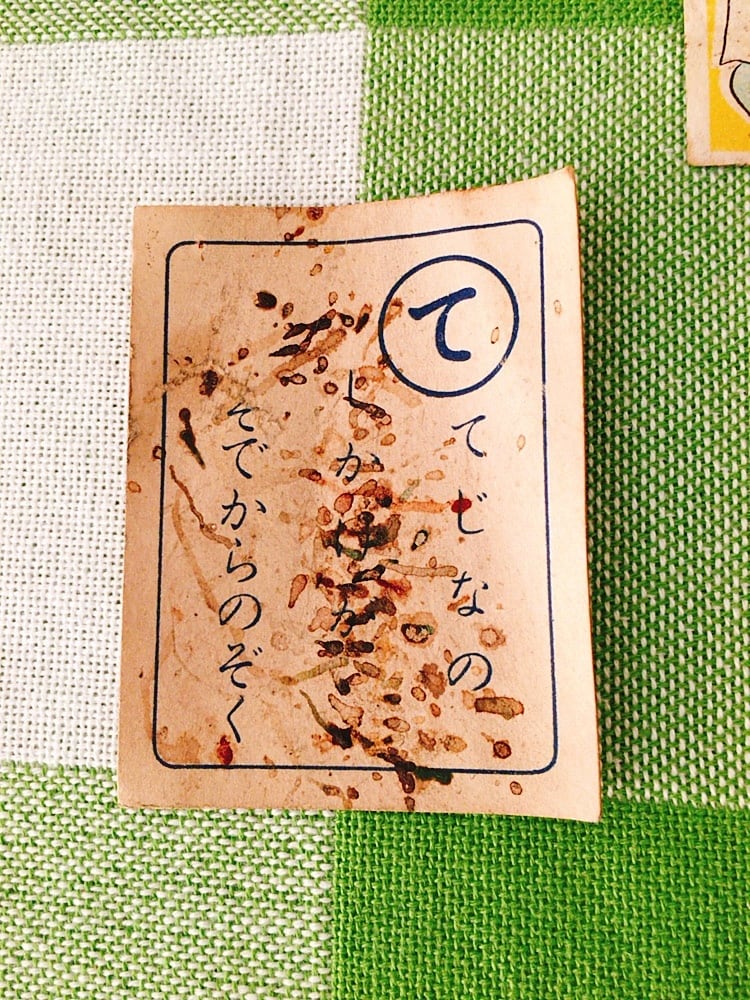 て
てじなの
しかけが
そでからのぞく